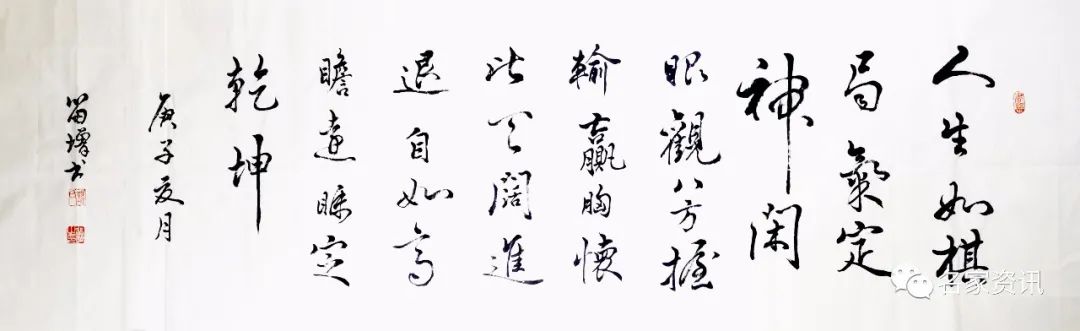 人生如棋
局氣定
神闲
眼觀八方握
輸贏胸懷
比天闊進
退自如高
瞻遠瞩定
乾坤
庚子夏月
书
名家资讯